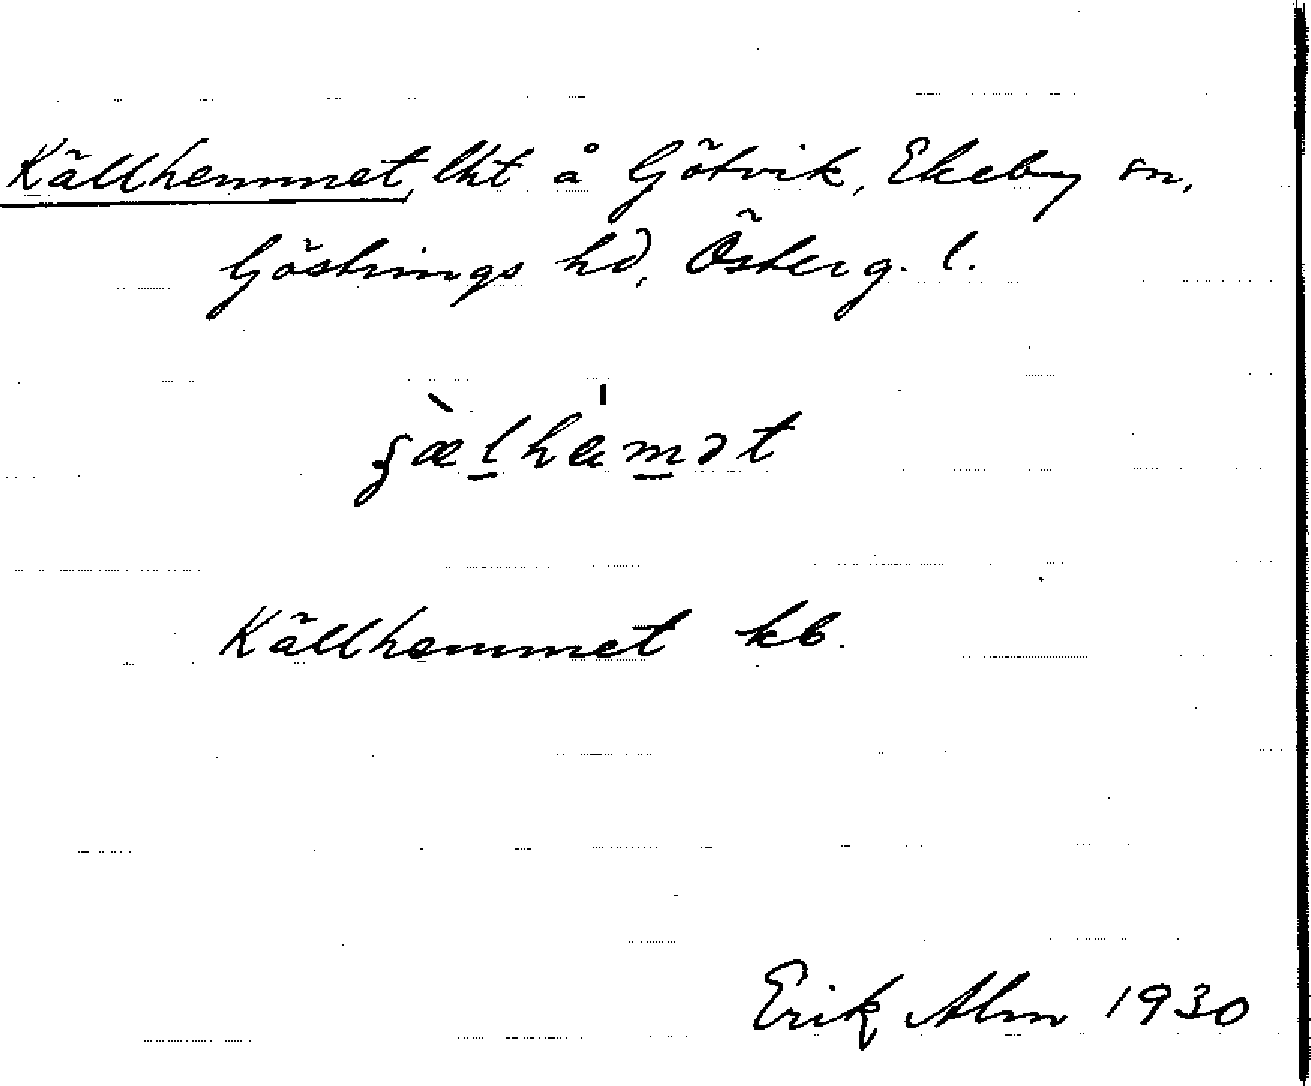 Källhemmet, lht å Götvik, Ekeby sn,
Göstrings hd, Österg. l.
Källhemmet kb.
Erik Alm 1930